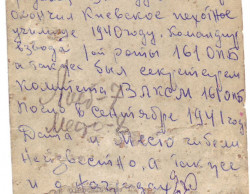 окончил Киевское пехотное
училище 1940 году. Командир
взвода 1ой роты 161 ОПБ
а так же был секретарем
комитета ВЛКСМ 161 ОПБ
Погиб в сентябре 1941 г.
Дата и место гибели
Неизвестно. А так же
и о